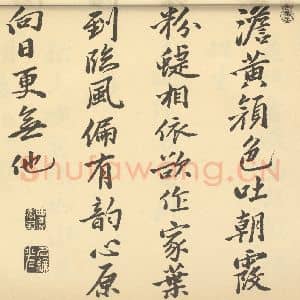 澹黃顏色吐朝霞
粉蝶相依許作家葉
到臨風偏有韵心原
向日更無他
Shufawang.CN